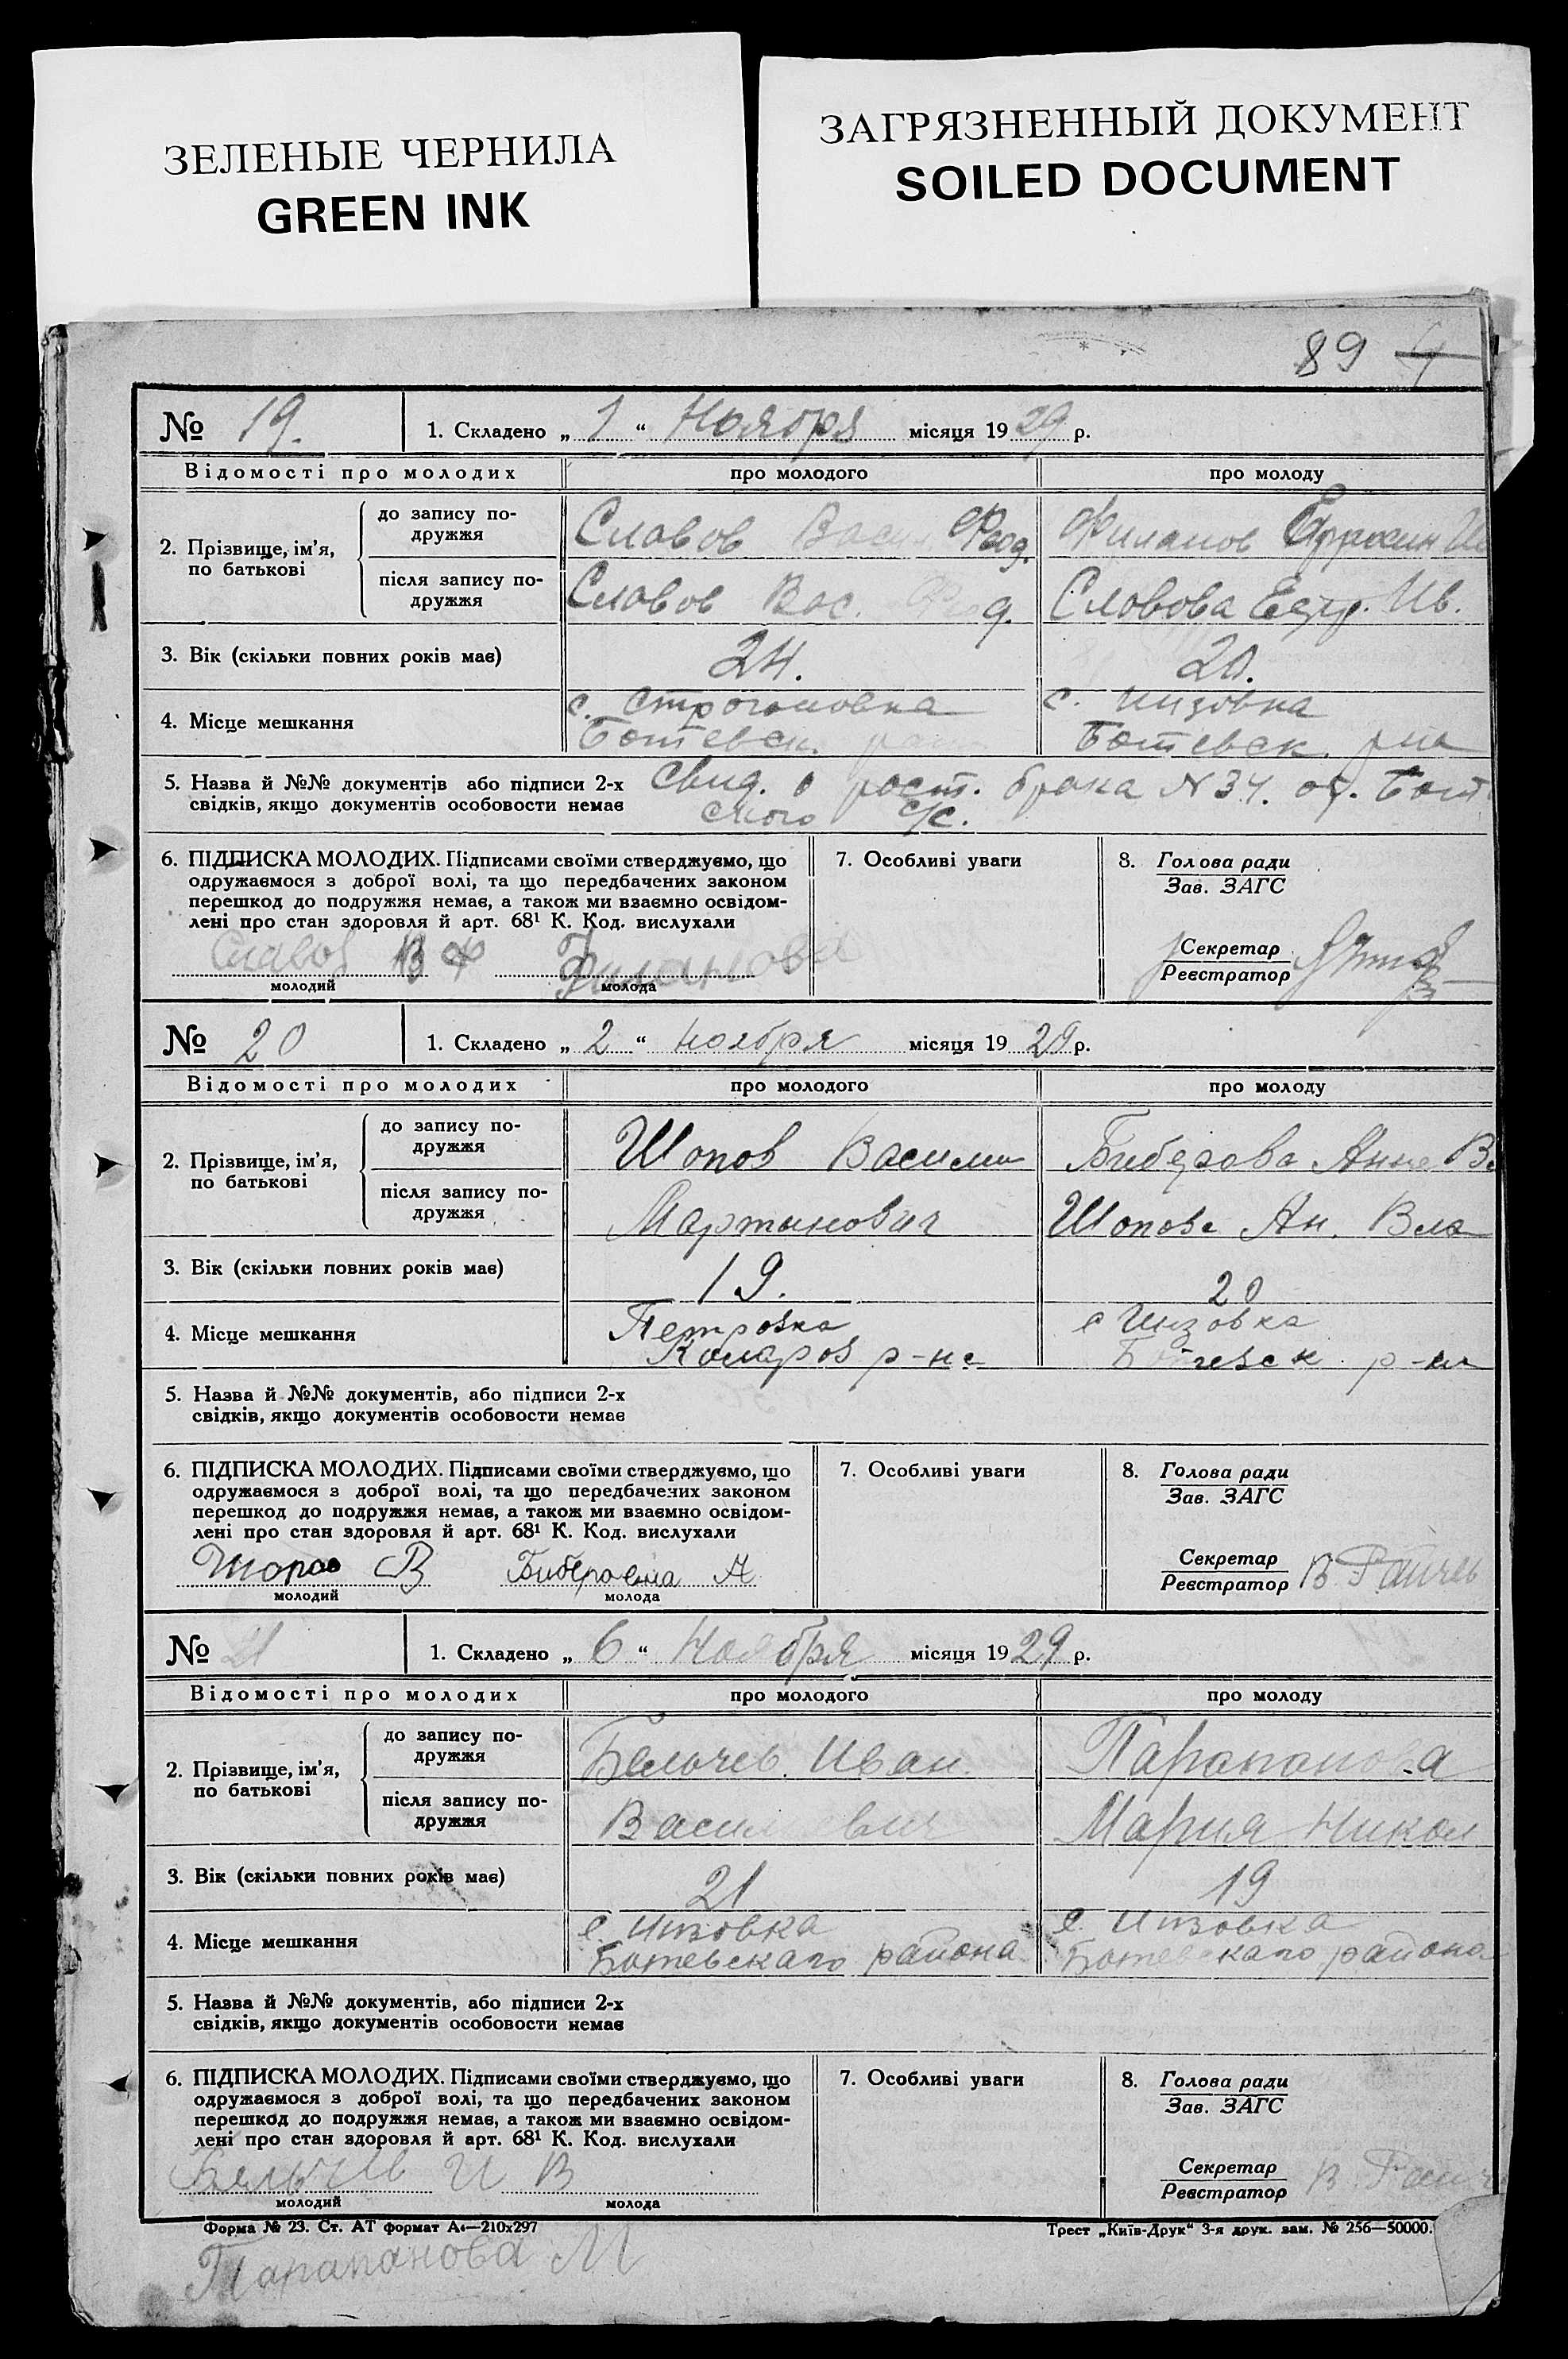 ЗЕЛЕНЫЕ ЧЕРНИЛА
GREEN INK
ЗАГРЯЗНЕННЫЙ ДОКУМЕНТ
SOILED DOCUMENT
89
№ 19. 1. Складено „ 1 “ Ноября місяця 1929 р.
Відомості про молодих про молодого про молоду
2. Прізвище, ім'я, по батькові
до запису по-
дружжя
Славов Васил Феод.
Филапов
після запису по-
дружжя
Славов Вас. Феод.
Словова Ив.
3. Вік (скільки повних років має) 24. 20.
4. Місце мешкання
с. Строгоновка
Ботевск.
с. Инзовка
Ботевск. рна
5. Назва й №№ документів або підписи 2-х
свідків, якщо документів особовости немає
Свид. о раст. брака N 34.
ского с/с.
6. ПІДПИСКА МОЛОДИХ. Підписами своїми стверджуємо, що
одружаємося з доброї волі, та що передбачених законом
перешкод до подружжя немає, а також ми взаємно освідом-
лені про стан здоровля й арт. 68¹ К. Код. вислухали
Славов В Ф Филанова
молодий молода
7. Особливі уваги
8. Голова ради
Зав. ЗАГС
Секретар
Реєстратор
№ 20 1. Складено „ 2 “ ноября місяця 1929 р.
Відомості про молодих про молодого про молоду
2. Прізвище, ім'я, по батькові
до запису по-
дружжя
Шопов Василий
Биберова Анна
після запису по-
дружжя
Мартынович
Шопова Ан. Вла
3. Вік (скільки повних років має) 19. 20
4. Місце мешкання
Петровка
Коларов р-на
с Инзовка
Ботевск р-на
5. Назва й №№ документів, або підписи 2-х
свідків, якщо документів особовости немає
6. ПІДПИСКА МОЛОДИХ. Підписами своїми стверджуємо, що
одружаємося з доброї волі, та що передбачених законом
перешкод до подружжя немає, а також ми взаємно освідом-
лені про стан здоровля й арт. 68¹ К. Код. вислухали
Шопов В А
молодий молода
7. Особливі уваги
8. Голова ради
Зав. ЗАГС
Секретар
Реєстратор
В. Райчев
№ 21 1. Складено „ 6 “ Ноября місяця 1929 р.
Відомості про молодих про молодого про молоду
2. Прізвище, ім'я, по батькові
до запису по-
дружжя
Белочев. Иван.
Парапанова
після запису по-
дружжя
Василевич
Мария Никол
3. Вік (скільки повних років має) 21 19
4. Місце мешкання
с. Инзовка
Ботевскаго района
с. Инзовка
Ботевскаго района
5. Назва й №№ документів, або підписи 2-х
свідків, якщо документів особовости немає
6. ПІДПИСКА МОЛОДИХ. Підписами своїми стверджуємо, що
одружаємося з доброї волі, та що передбачених законом
перешкод до подружжя немає, а також ми взаємно освідом-
лені про стан здоровля й арт. 68¹ К. Код. вислухали
И В
молодий молода
7. Особливі уваги
8. Голова ради
Зав. ЗАГС
Секретар
Реєстратор
В. Райч
Форма № 23. Ст. АТ формат А₄—210х297
Трест „Київ-Друк“ 3-я друк. зам. № 256—50000.
Парапанова М